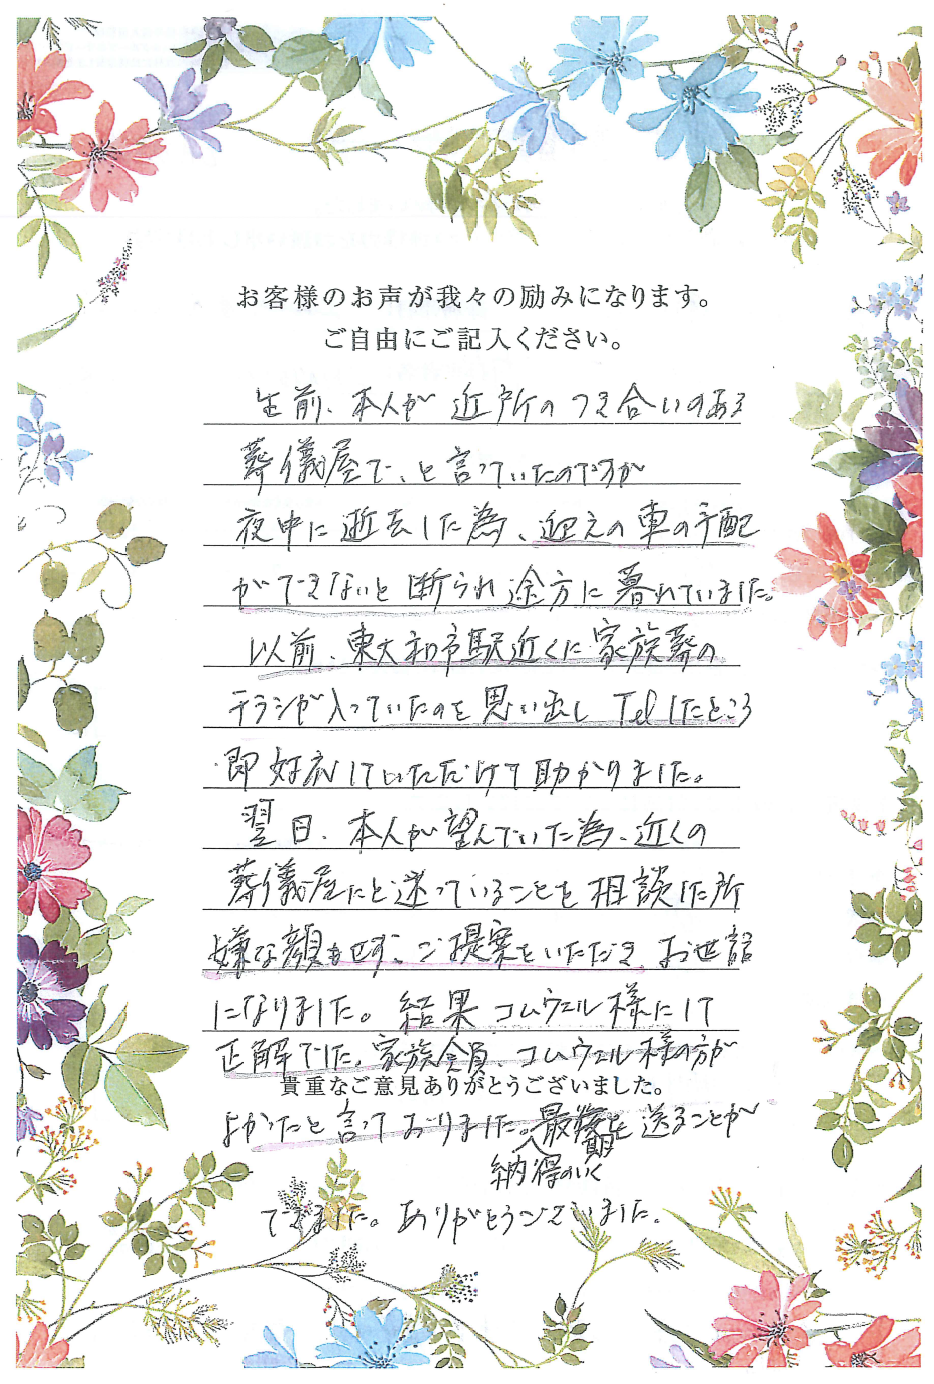 お客様のお声が我々の励みになります。
ご自由にご記入ください。
生前、本人が近所のつき合いのある
葬儀屋で、と言っていたのですが
夜中に逝去した為、迎えの車の手配
ができないと断られ途方に暮れていました。
以前、東大和市駅近くに家族葬の
チラシが入っていたのを思い出しTelしたところ
即対応していただけて助かりました。
翌日、本人が望んでいた為、近くの
葬儀屋だと迷っていることを相談した所
嫌な顔もせず、ご提案をいただき お世話
になりました。結果 コムウェル様にして
正解でした。家族全員、コムウェル様の方が
貴重なご意見ありがとうございました。
よかったと言っておりました。最期を送ることが
納得のいく
できました。ありがとうございました。